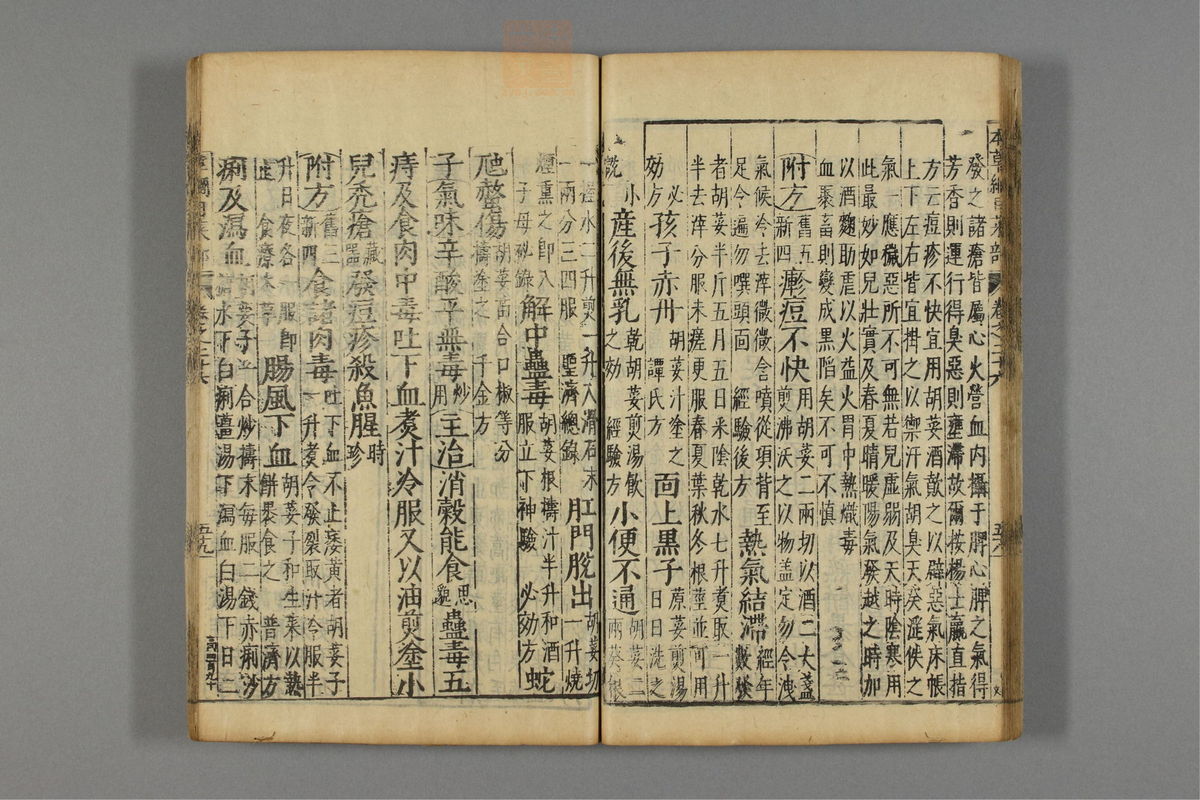 本草綱目菜部 卷之二十六 五八
發之諸瘡皆屬心火營血内攝于脾心脾之氣得
芳香則運行得臭惡則壅滯故爾按楊士瀛直指
方云痘疹不快宜用胡荽酒噴之以辟惡氣床帳
上下左右皆宜掛之以禦汗氣胡臭天癸淫佚之
氣一應穢惡所不可無若兒虛弱及天時陰寒用
此最妙如兒壯實及春夏晴暖陽氣發越之時加
以酒麴助虐以火益火胃中熱熾毒
血聚畜則變成黑陷矣不可不慎
附方舊五新四疹痘不快用胡荽二兩切以酒二大盞煎沸沃之以物盖定勿令洩
氣候冷去滓微微含噴從項背至足令遍勿噀頭面 經驗後方 熱氣結滯經年數發
者胡荽半斤五月五日采陰乾水七升煮取一升半去滓分服未瘥更服春夏葉秋冬根莖並可用
必効方 孩子赤丹胡荽汁塗之 譚氏方 面上黑子荽煎湯日日洗之
小說 産後無乳乾胡荽煎湯飲之効 經驗方 小便不通胡荽二兩葵根
一握水二升煎一升入滑石末一兩分三四服 聖濟總錄 肛門脫出胡荽切一升燒
煙熏之即入 子母秘錄 解中蠱毒胡荽根擣汁半升和酒服立下神驗 必効方 蛇
虺螫傷胡荽苗合口椒等分擣塗之 千金方
子氣味辛酸平無毒炒用主治消穀能食思邈蠱毒五
痔及食肉中毒吐下血煮汁冷服又以油煎塗小
兒禿瘡藏器發痘疹殺魚腥時珍
附方舊三新四食諸肉毒吐下血不止痿黄者胡荽子一升煮令發裂取汁冷服半
升日夜各一服即止 食療本草 腸風下血胡荽子和生菜以熱餅裹食之 普濟方
痢及瀉血胡荽子一合炒擣末每服二錢赤痢砂糖水下白痢薑湯下瀉血白湯下日二
卷之二十六 五九